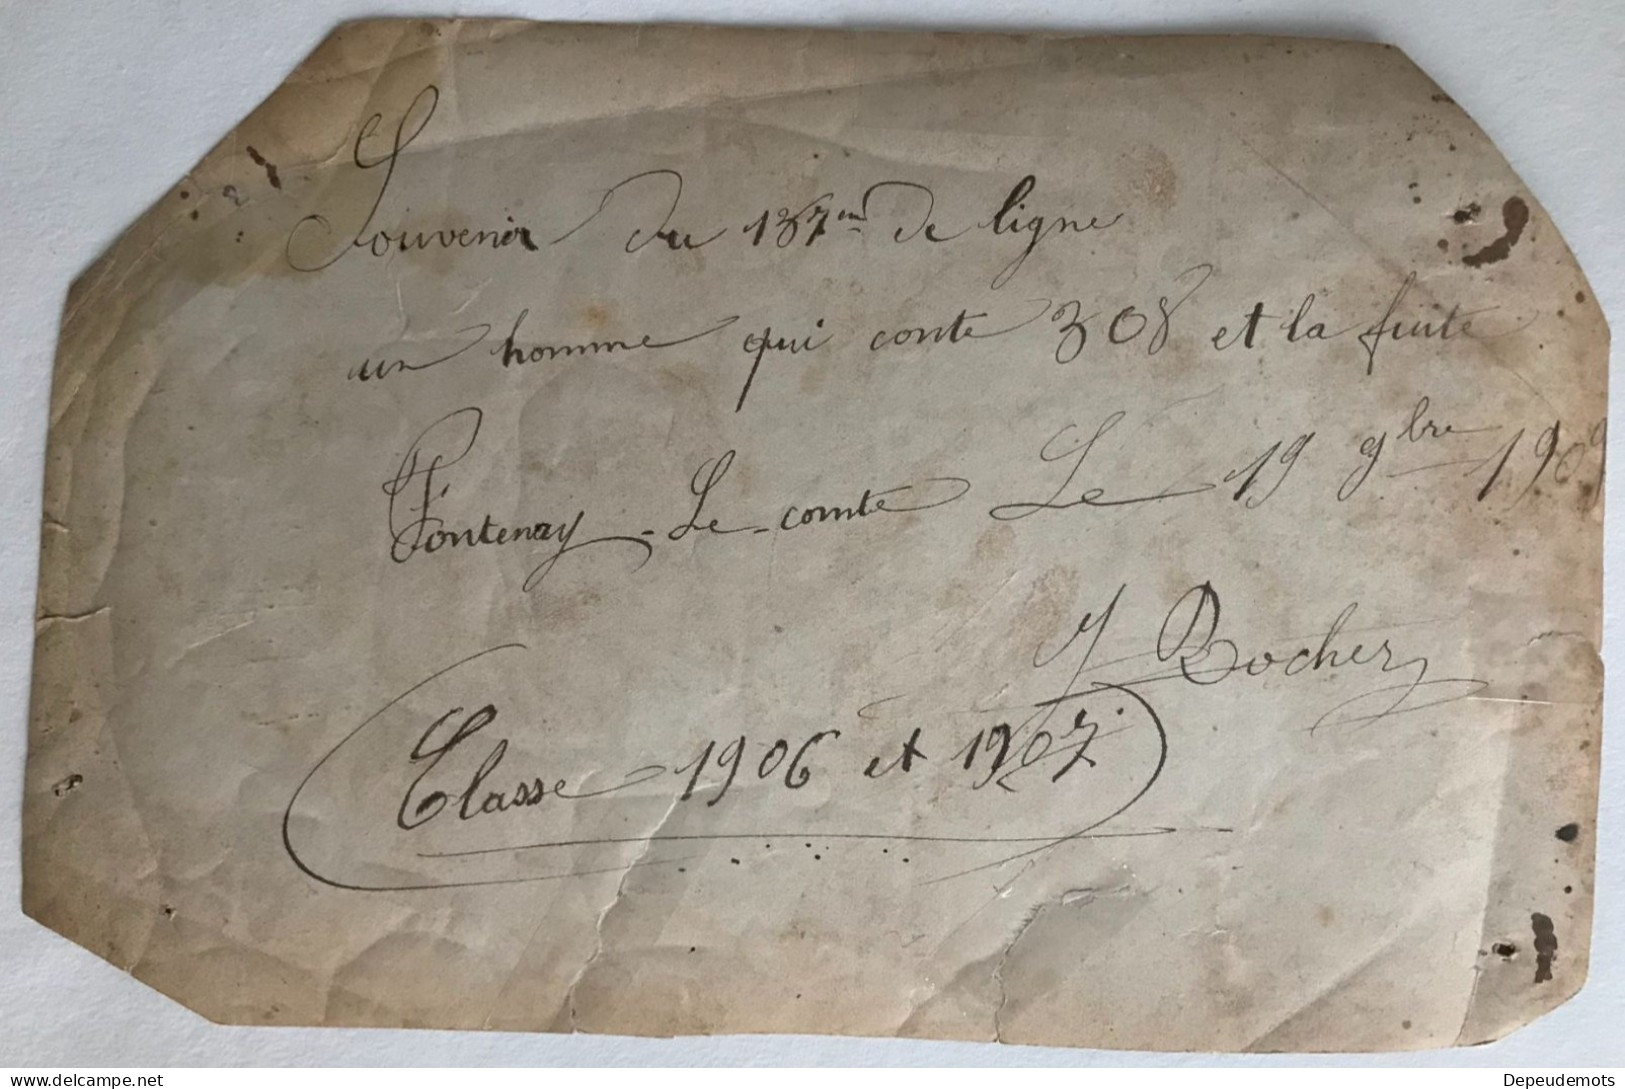 Souvenir du 137em de ligne
un homme qui conte 308 et la fuite
Fontenay-Le-comte Le 19 9bre 1909
J Bocher
Classe 1906 et 1907.
Depeudemots